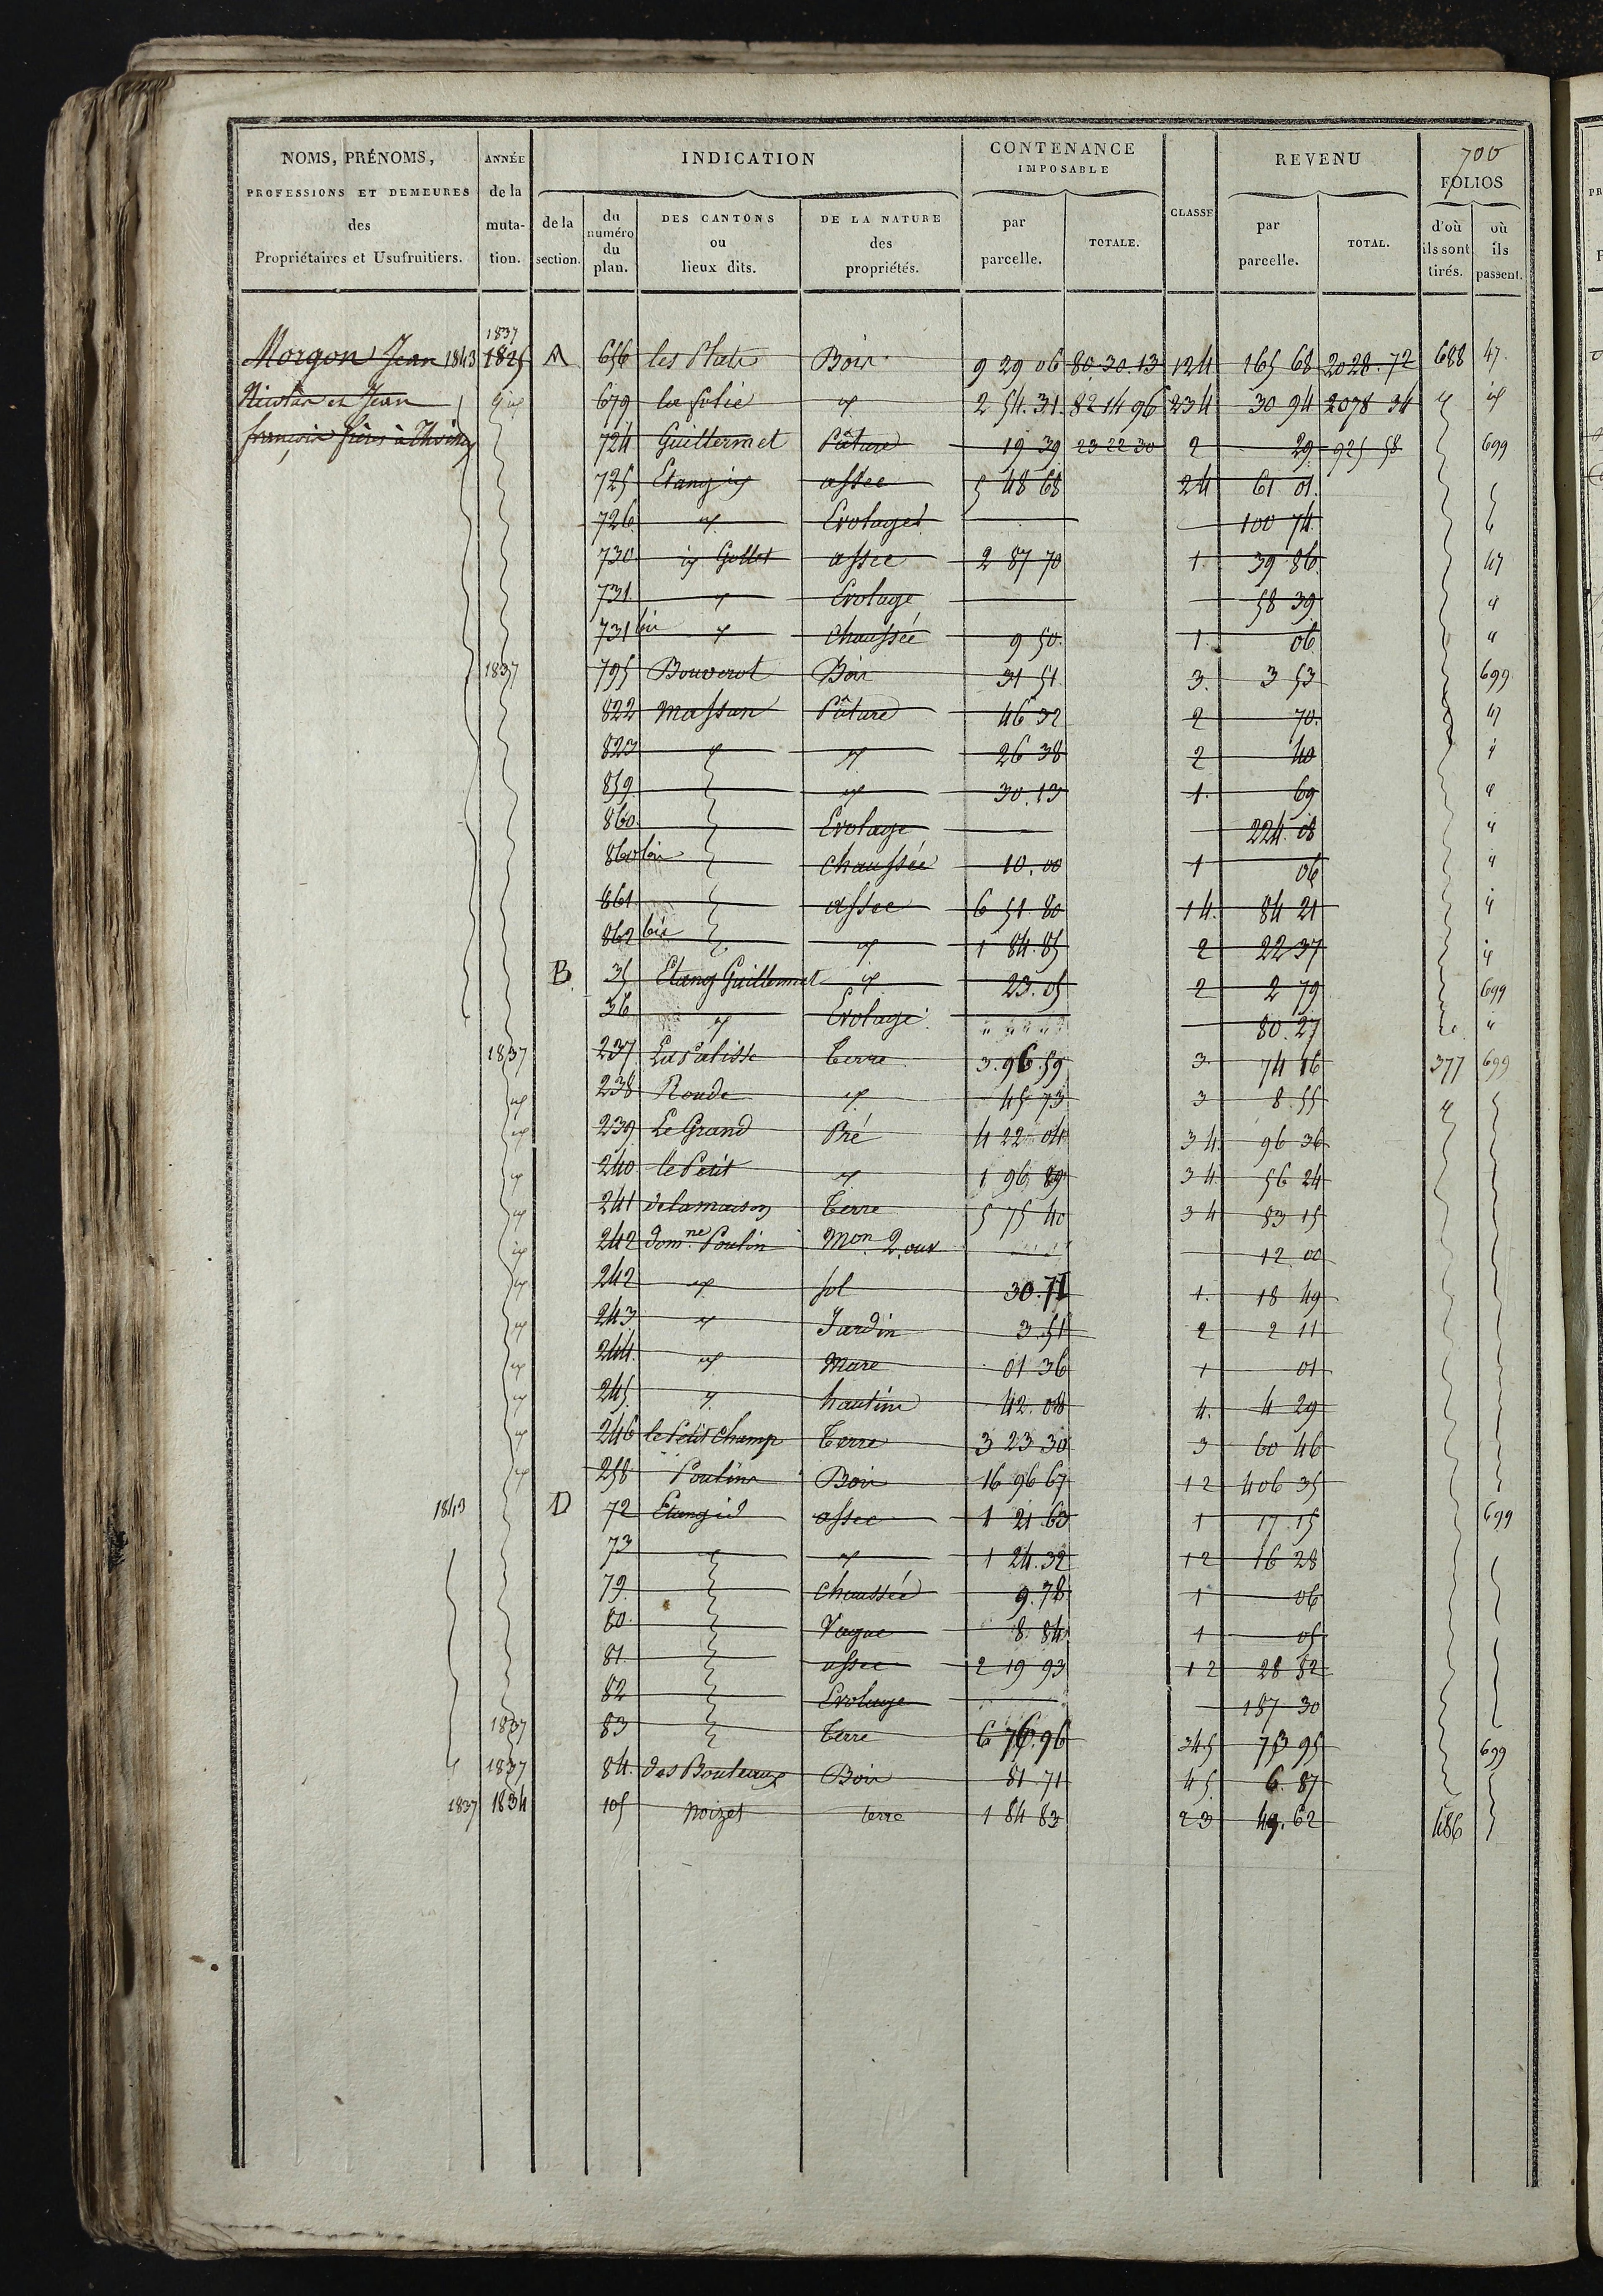 700
NOMS, PRÉNOMS, PROFESSIONS ET DEMEURES des Propriétaires et Usufruitiers.
ANNÉE de la muta- tion.
INDICATION
de la section.
du numéro du plan.
DES CANTONS ou lieux dits.
DE LA NATURE des propriétés.
CONTENANCE IMPOSABLE
par parcelle.
TOTALE.
CLASSE
REVENU
par parcelle.
TOTAL.
FOLIOS
d'où ils sont tirés.
où ils passent.
1837
Morgon Jean 1843 1825 A 656 les Bois 9 29 06 80.30.13 124 165 68 2028.72 688 47.
Nicolas et Jean id 679 la folie id 2 54.31. 82 14 96 234 30 94 2078 34 id id
françois frères à 724 Guillermet Pâture 19 39 23 22 30 2 29 925 58 699
725 Etang id assec 5 48 68 24 61 01.
726 id Evolage 100 74
730 id Gollet assec 2 87 70 1 39 86 47
731. id Evolage 58 39 id
731 bis id chaussée 9 50. 1. 06 "
1837 795 Bouverot Bois 31 51 3. 3 53 699
822 Massan Pâture 46 32 2 70. 47
823 id id 26 38 2 40 id
859. id 30.13 1. 69 id
860. Evolage 224.08 "
860 bis chaussée 10.00 1 06 "
861 assec 6 51 80 14. 84 21 "
862 bis id 1 84.85 2 22 37 "
B. 35 Etang Guillermet id 23.05 2 2 79 699
36 id Evolage " " " " 80.27 "
1837 237 La Palisse terre 3.96.59 3 74 16 377 699
id 238 Ronde id 45 73 3 8.55 id
id 239 Le Grand Pré 4 22 04 34. 96 36
id 240 le Petit id 1 96 89 34 56 24
id 241 de la maison terre 5 75 40 34 83 15
id 242 dom.ne Poulin Mon 2 ouv 12 00
id 242 id sol 30.71 1. 18 49
id 243 id Jardin 3.51 2 2 11
id 244. id Mare 01 36 1 01
id 245. id hautins 42.08 4. 4 29
id 246 le Petit champ terre 3 23 30 3 60 46
id 258 Poulins Bois 16 96 67 12 406 35
1843 D 72 Etang id assec 1 21 63 1 17 15 699
73 id id 1 24.32 12 16 28
79. chaussée 9.78 1 06
80. Vague 8 84 1 05
81. assec 2 19 93 12 28 82
82 Evolage 187 30
1837 83 terre 6 76.96 345 73 95 699
id 1837 84. des Bouleaux Bois 81 71 45. 6.87
1837 1834 105 Noizet terre 1 84 83 23 49.62 486